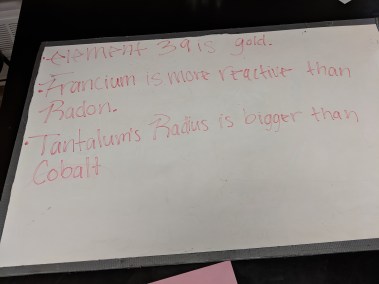 ·element 39 is gold.
·Francium is more reactive than
Radon.
·Tantalum's Radius is bigger than
Cobalt